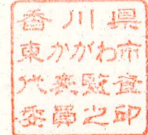 香川県
東かがわ市
代表監査
委員之印